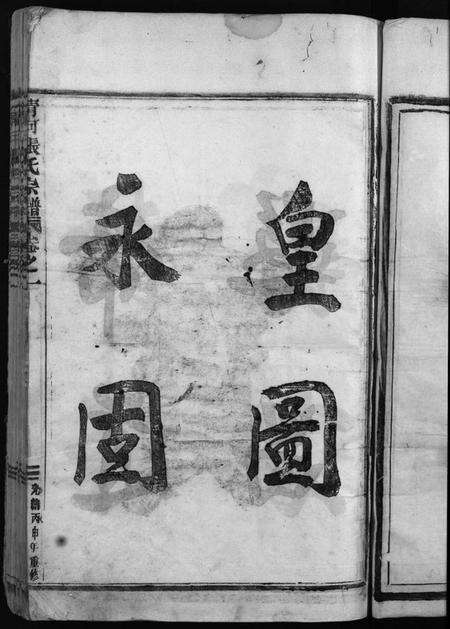 皇圖
永固
清河張氏宗譜 卷之一
光緒丙申年重修